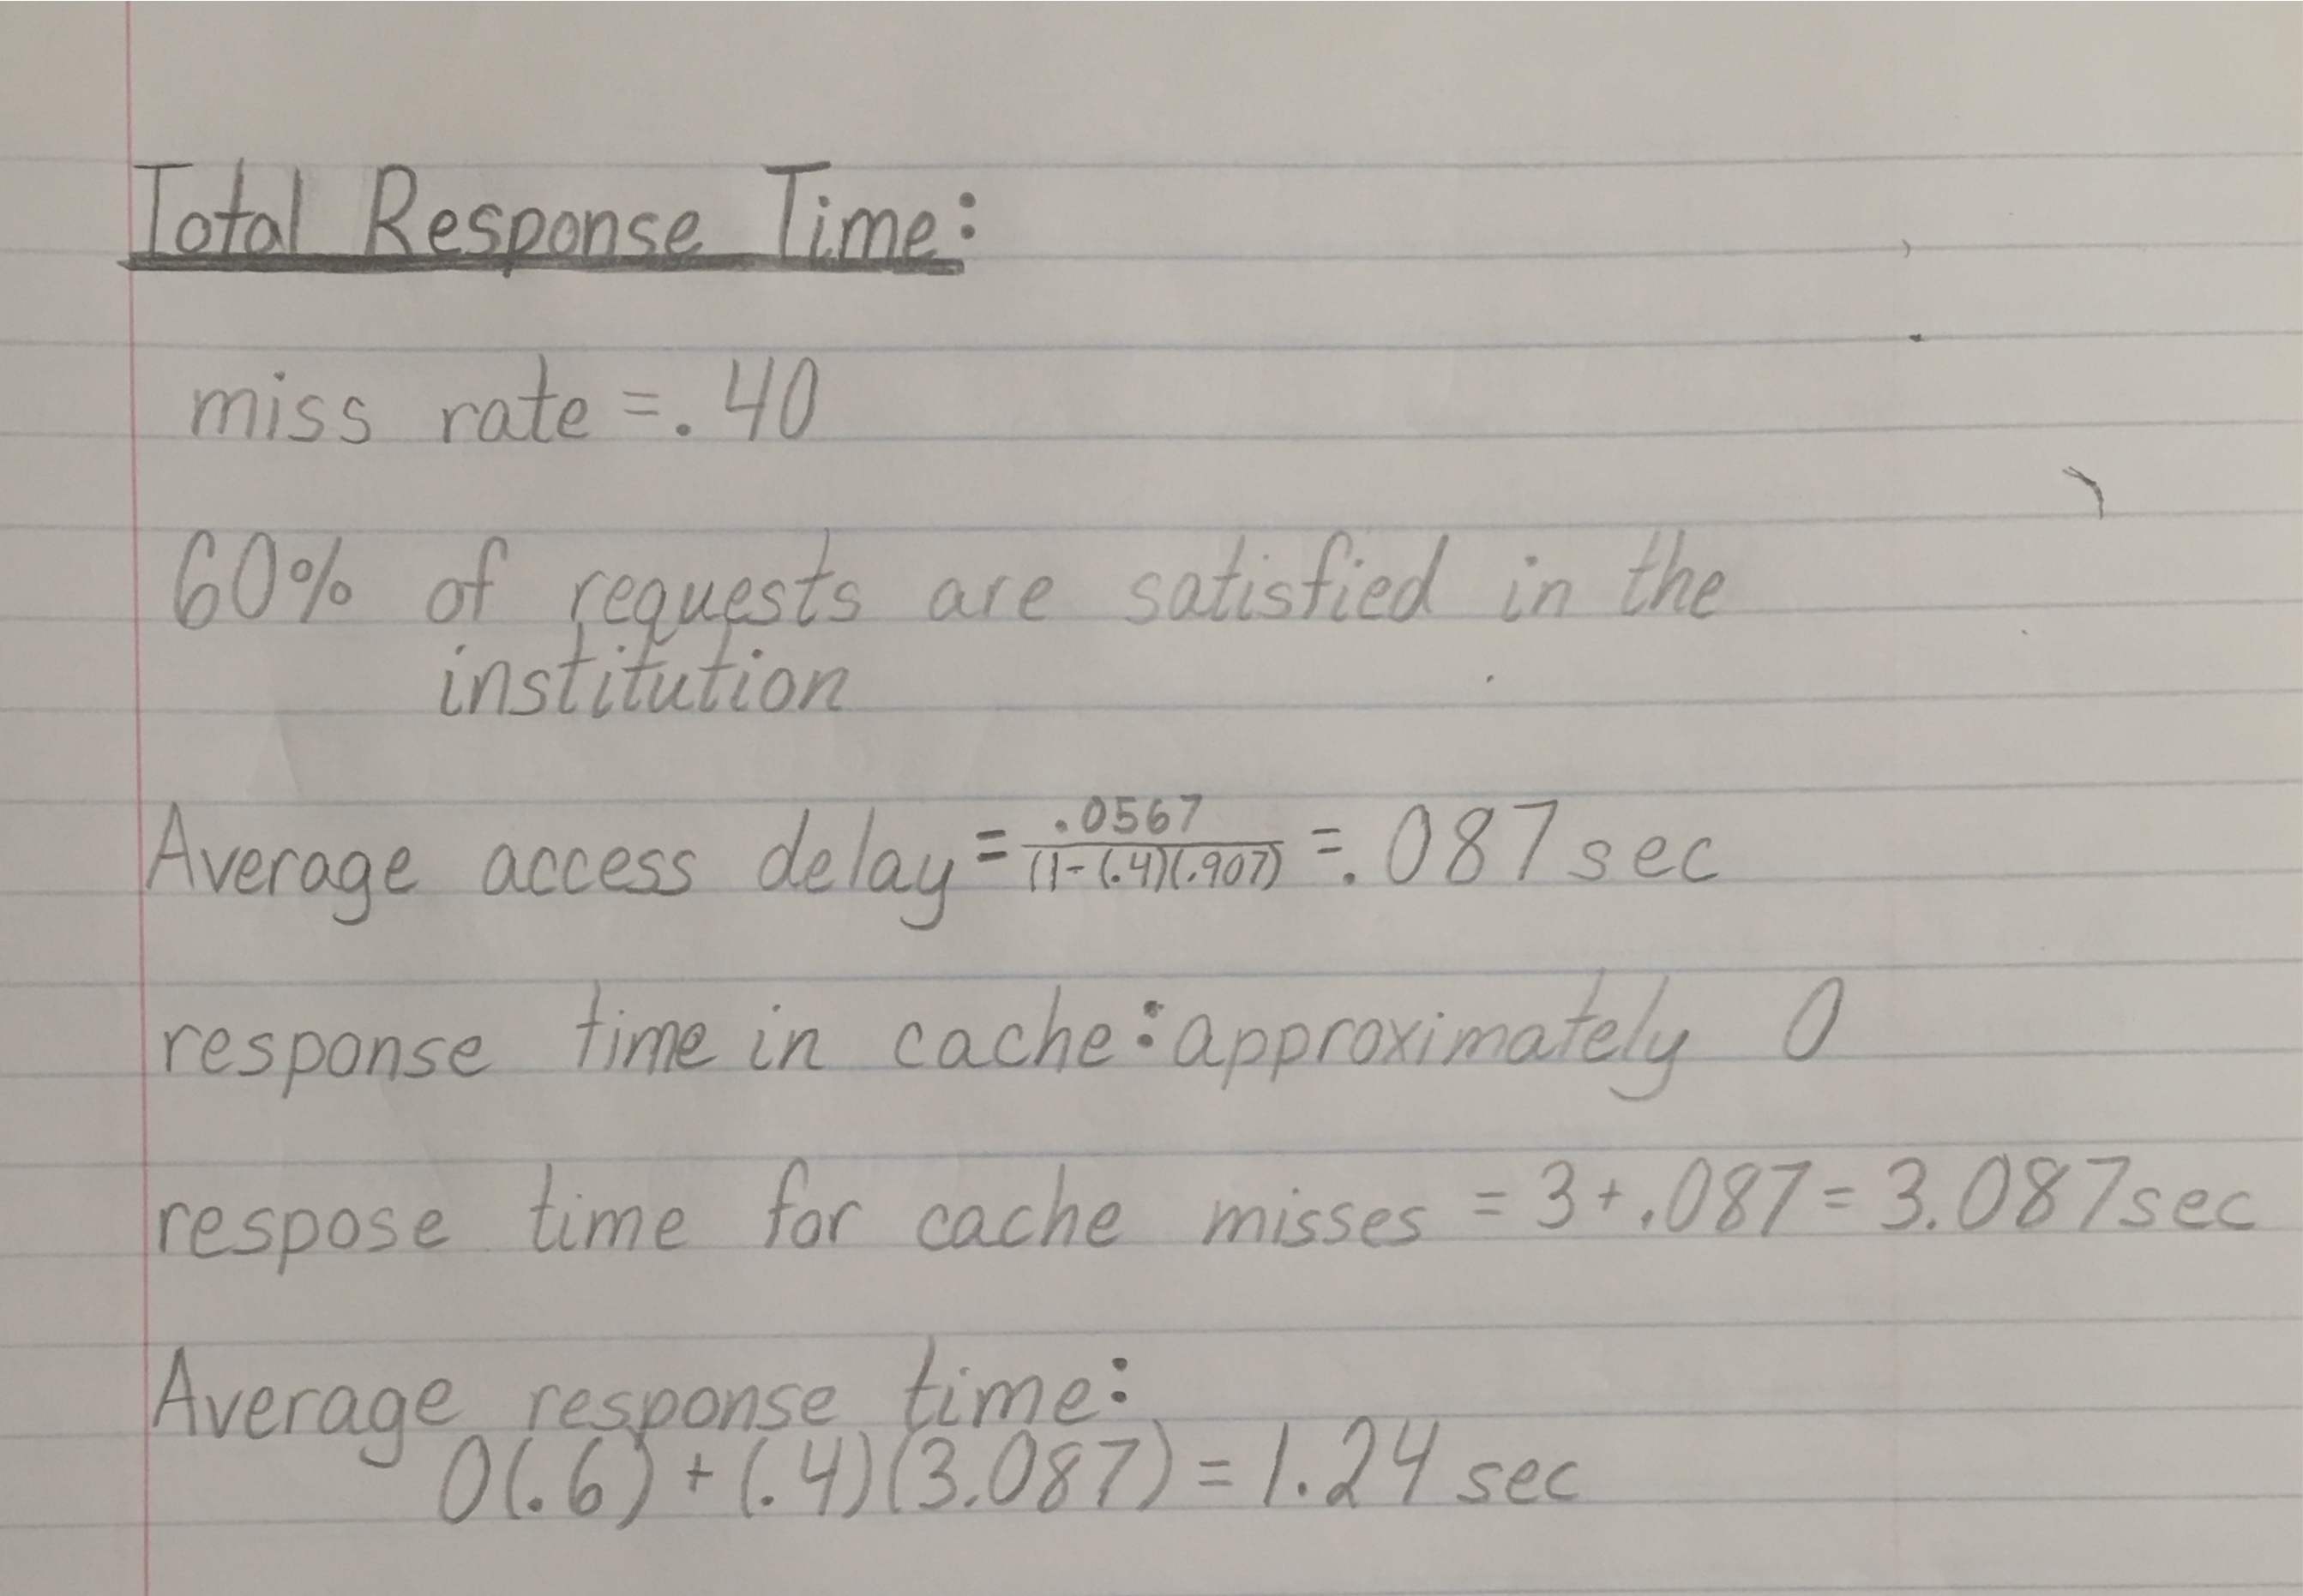 Total Response Time:
miss rate = .40
60% of requests are satisfied in the
institution
Average access delay = .0567/(1-(.4)(.907) = .087 sec
response time in cache: approximately 0
respose time for cache misses = 3 + .087 = 3.087 sec
Average response time:
0(.6) + (.4)(3.087) = 1.24 sec